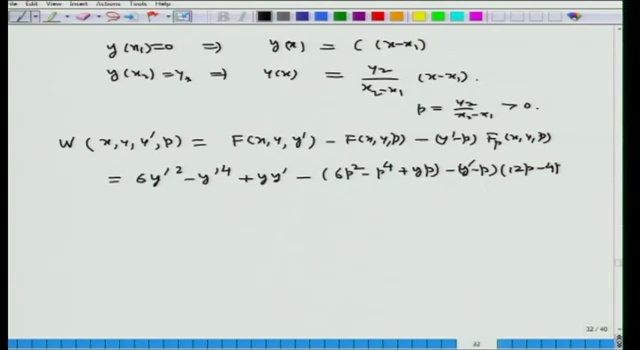 File Edit View Insert Actions Tools Help
y(x₁)=0 ⇒ y(x) = C (x-x₁)
y(x₂)=y₂ ⇒ y(x) = y₂/(x₂-x₁) (x-x₁).
p = y₂/(x₂-x₁) > 0.
W (x,y,y',p) = F(x,y,y') - F(x,y,p) - (y'-p) Fₚ(x,y,p)
= 6y'² - y'⁴ + yy' - (6p² - p⁴ + yp) - (y'-p)(12p-4p
32 / 40
32